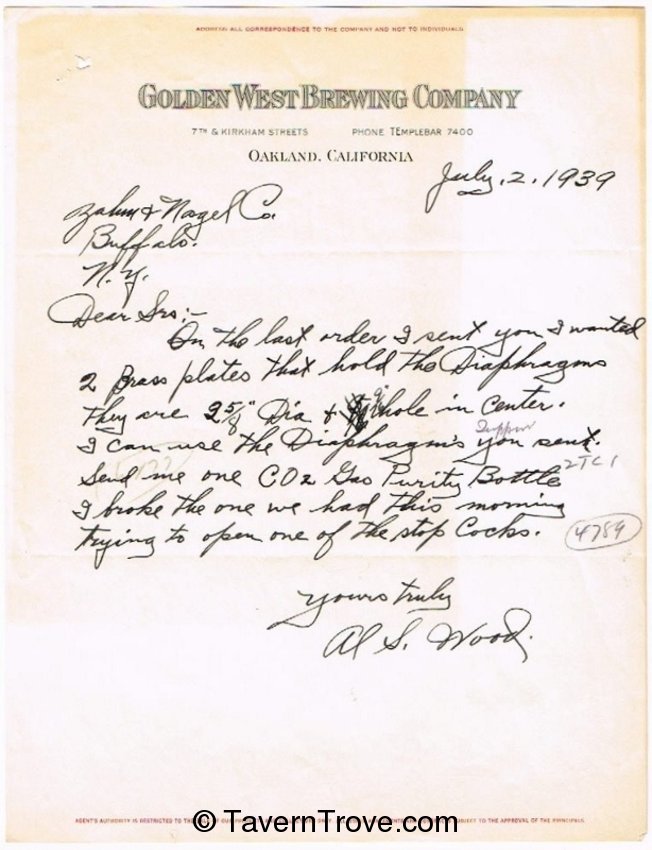 ADDRESS ALL CORRESPONDENCE TO THE COMPANY AND NOT TO INDIVIDUALS
GOLDEN WEST BREWING COMPANY
7TH & KIRKHAM STREETS PHONE TEMPLEBAR 7400
OAKLAND, CALIFORNIA
July, 2, 1939
Zahm & Nagel Co.
Buffalo.
N.Y.
Dear Srs:-
On the last order I sent you I wanted
2 Brass plates that hold the Diaphragms
they are 2 5/8" Dia & hole in center.
I can use the Diaphragm's you sent.
Send me one CO2 Gas Purity Bottle
2TC1
I broke the one we had this morning
trying to open one of the stop Cocks.
4789
Yours truly
Al S. Wood.
AGENT'S AUTHORITY IS RESTRICTED TO THE SUBJECT TO THE APPROVAL OF THE PRINCIPALS.
© TavernTrove.com